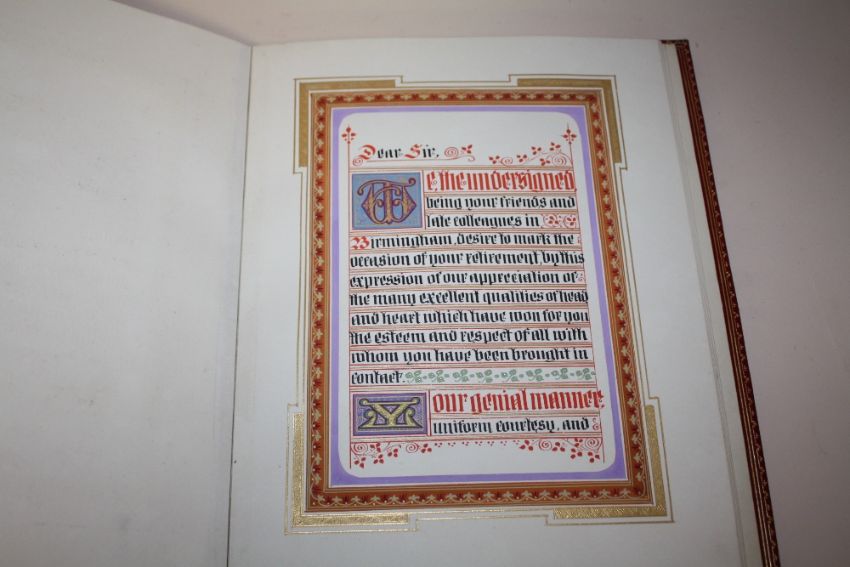 Dear Sir,
We, the undersigned,
being your friends and
late colleagues in
Birmingham, desire to mark the
occasion of your retirement, by this
expression of our appreciation of
the many excellent qualities of head
and heart which have won for you
the esteem and respect of all with
whom you have been brought in
contact.
Your genial manner,
uniform courtesy, and